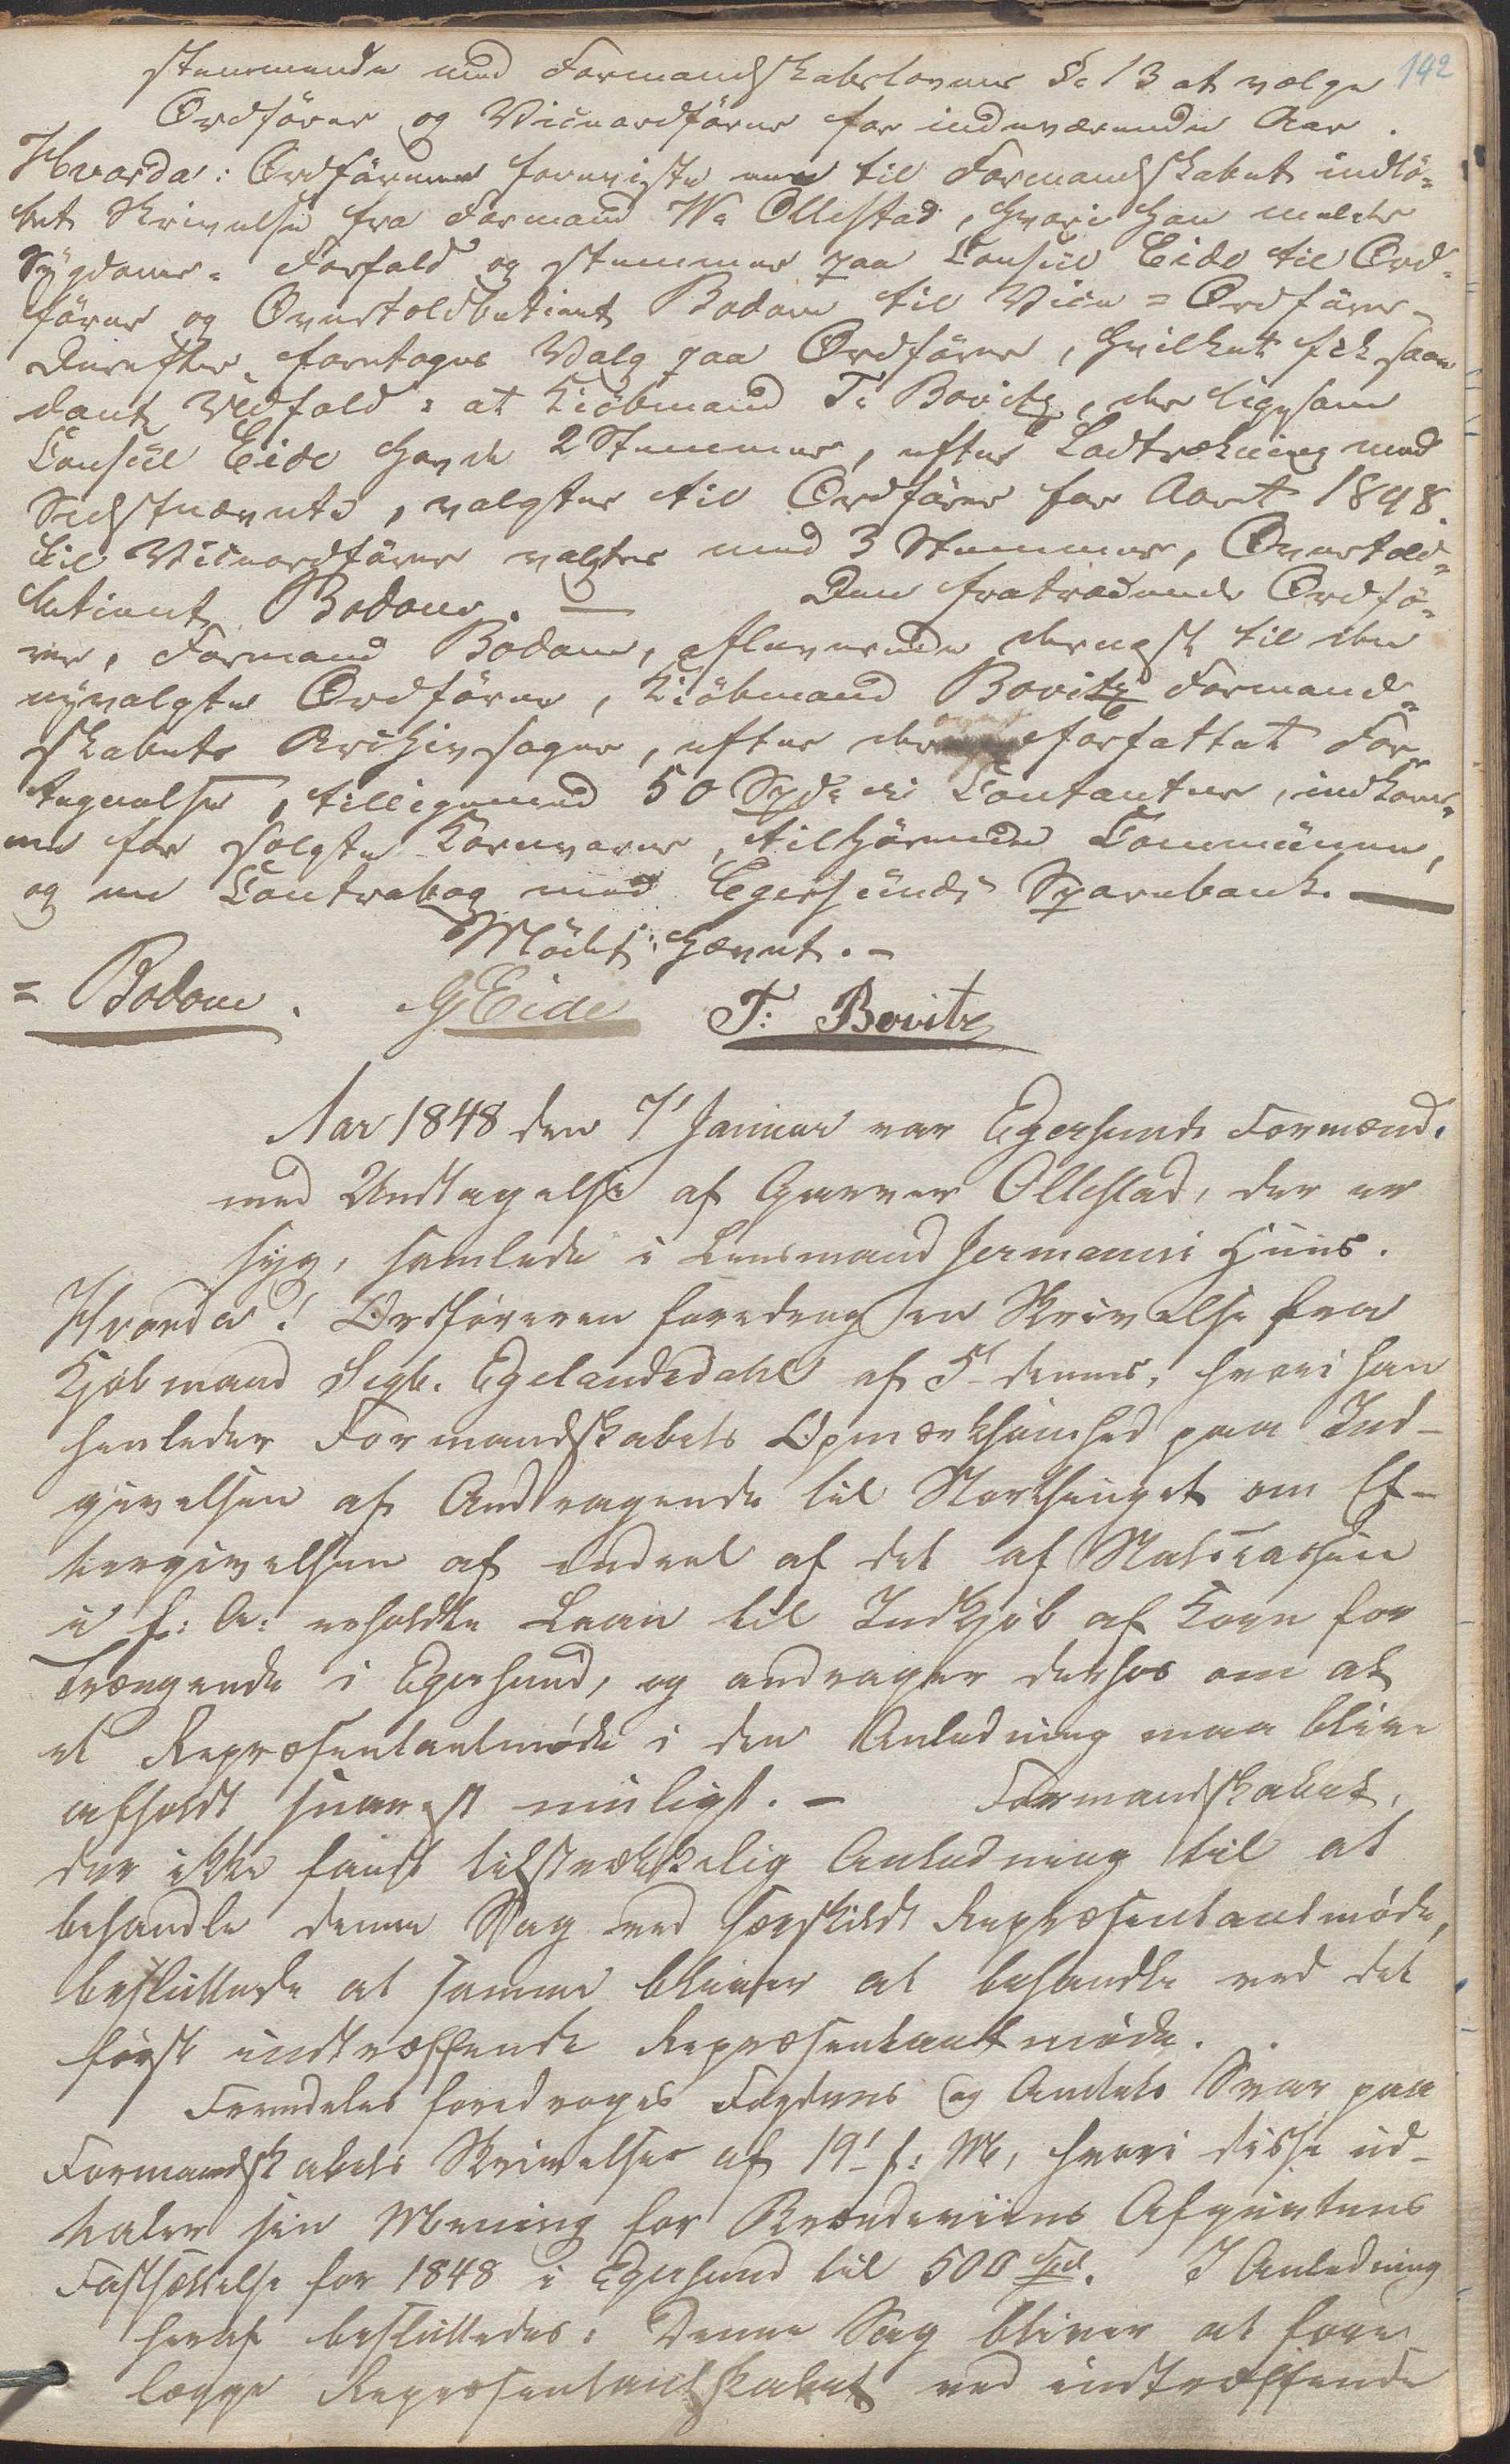 142
stemmende med Formandskabslovens §. 13 at vælge
Ordfører og Viceordfører for indeværende Aar.
Hvorda: Ordføreren foreviste en til Formandskabet indlø=
bet Skrivelse fra Formand W. Ollestad, hvori han melder
Sygdoms= Forfald og stemmer paa Consul Eide til Ord=
fører og Overtoldbetient Bodom til Vice=Ordfører.
Derefter foretoges Valg paa Ordfører, hvilket fik saa
dant Udfald: at Kiöbmand T. Bovitz, der ligesom
Consul Eide havde 2 Stemmer, efter Lodtrækning med
Sidstnævnte, valgtes til Ordfører for Aaret 1848.
Til Viceordfører valgtes med 3 Stemmer, Overtold=
betient Bodom. — Den fratrædende Ordfø=
rer, Formand Bodom, afleverede dernæst til den
nyvalgte Ordfører, Kiöbmand Bovitz Formand=
skabets Archivsager, efter derover forfattet For
tegnelse, tilligemed 50 Spd. i Contanter, indkom=
ne for solgte Kornvarer, tilhørende Communen,
og en Contrabog med Egersunds Sparebank. —
Mödet hævet. —
= Bodom. GEide T: Bovitz
Aar 1848 den 7' Januar var Egersunds Formænd,
med Undtagelse af Garver Ollestad, der er
syg, samlede i Lensmand Jermanns Huus.
Hvorda! Ordføreren foredrog en Skrivelse fra
Kjøbmand Sigb. Egelandsdahl af 5' dennes, hvori han
henleder Formandskabets Opmærksomhed paa Ind-
givelsen af Andragende til Storthinget om Ef-
tergivelsen af endeel af det af Statscassen
i f: A: erholdte Laan til Indkjøb af Korn for
Trængende i Egersund, og andrager derhos om at
et Repræsentantmøde i den Anledning maa blive
afholdt snarest muligt. — Formandskabet,
der ikke fandt tilstrækkelig Anledning til at
behandle denne Sag ved særskildt Repræsentantmøde,
besluttede at samme bliver at behandle ved det
først indtræffende Repræsentantmøde.
Fremdeles foredroges Fogdens og Amtets Svar paa
Formandskabets Skrivelse af 19' f: M, hvori disse ud-
taler sin Mening for Brændeviins Afgivtens
Fastsættelse for 1848 i Egersund til 500 Spd. I Anledning
heraf besluttedes: Denne Sag bliver at fore
lægge Repræsentantskabet ved indtræffende